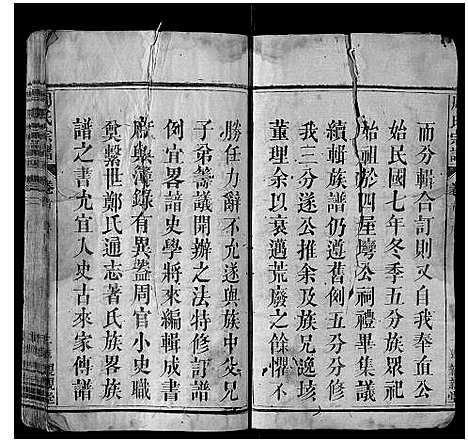 而分輯合訂則又咸奉面公
始民國七年冬季五分族眾祀
始祖於四屋塆公祠禮畢集議
續輯族譜仍遵舊例五分分修
我三分遂公推余及族兄
董理余以衰邁荒廢之餘懼不
勝任力辭不允遂與族中父兄
子弟籌議開辦之法特修訂譜
例宜畧諳史學將來編輯成書
厥與譜錄有異蓋周官小史職
奠繫世鄭氏通志著氏族畧族
譜之書尤宜人史古來家傳譜
周氏宗譜